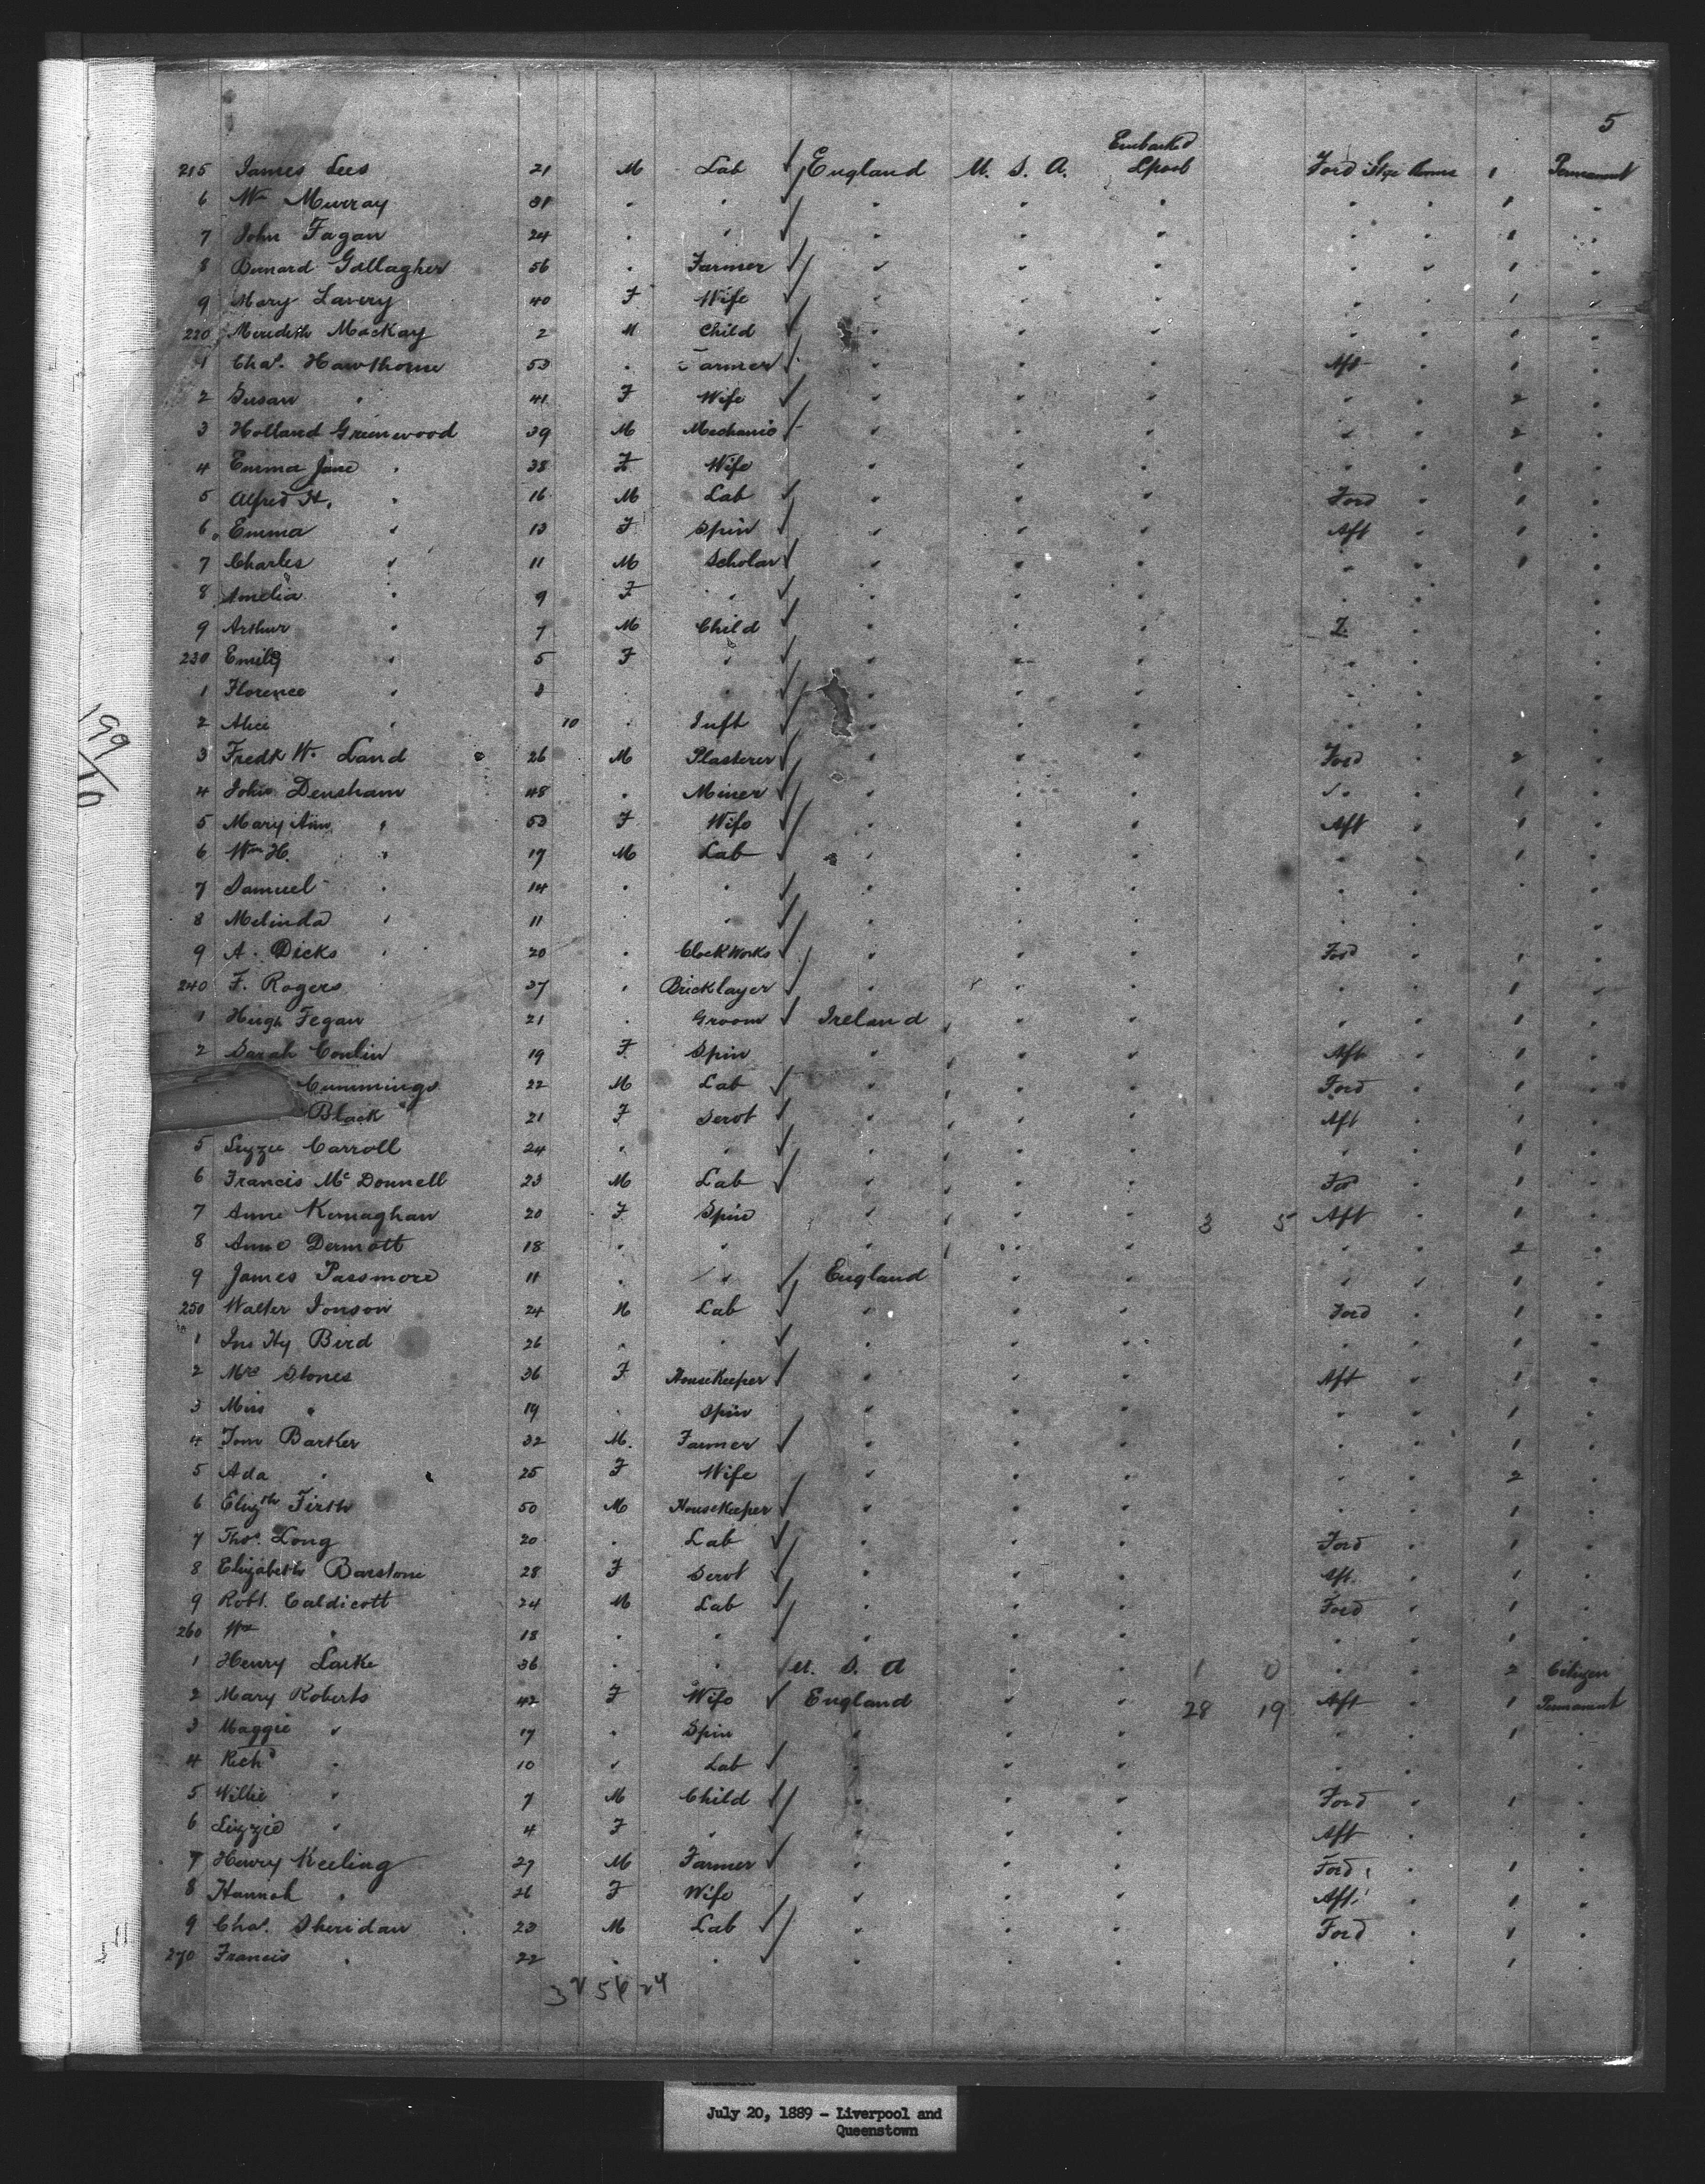 5
Embarked
215 James Lees 21 M Lab England U. S. A. Lpool Ford Stge 1 Permanent
6 Wm Murray 31 " " " " " " " 1 "
7 John Fagan 24 " " " " " " " 1 "
8 Bernard Gallagher 56 " Farmer " " " " " 1 "
9 Mary Lavery 40 F Wife " " " " " 1 "
220 Meredith Mackay 2 M Child " " " " " 1 "
1 Chas. Hawthorne 53 " Farmer " " " Aft " 1 "
2 Susan " 41 F Wife " " " " " 2 "
3 Holland Greenwood 39 M Mechanic " " " " " 2 "
4 Emma Jane " 38 F Wife " " " " " 1 "
5 Alfred H. " 16 M Lab " " " Ford " 1 "
6 Emma " 13 F Spin " " " Aft " 1 "
7 Charles " 11 M Scholar " " " " " 1 "
8 Amelia " 9 F " " " " " " "
9 Arthur " 7 M Child " " " " "
230 Emily " 5 F " " " " " " "
1 Florence " 3 " " " " " " " "
2 Alice " 10 " Inft " " " " " "
3 Fredk W. Land 26 M Plasterer " " " Ford " 2 "
4 John Densham 48 " Miner " " " " " 1 "
5 Mary Ann " 53 F Wife " " " Aft " 1 "
6 Wm H. " 19 M Lab " " " " " 1 "
7 Samuel " 14 " " " " " " " " "
8 Melinda " 11 " " " " " " " "
9 A. Dicks 20 " Clock Works " " " Ford " 1 "
240 F. Rogers 37 " Bricklayer " " " " " 1 "
1 Hugh Fegan 21 " Groom Ireland " " " " 1 "
2 Sarah Conlin 19 F Spin " " " Aft " 1 "
Cummings 22 M Lab " " " Ford " 1 "
Black 21 F Servt " " " Aft " 1 "
5 Lizzie Carroll 24 " " " " " " " 1 "
6 Francis McDonnell 23 M Lab " " " For " 1 "
7 Anne Kernaghan 20 F Spin " " " 3 5 Aft " 1 "
8 Anne Dermott 18 " " " " " " " 2 "
9 James Passmore 11 " " England " " " " 1 "
250 Walter Jonson 24 M Lab " " " Ford " 1 "
1 Jno Hy Bird 26 " " " " " " " 1 "
2 Mrs Stones 36 F Housekeeper " " " Aft " 1 "
3 Miss " 19 " Spin " " " " " 1 "
4 Tom Barker 32 M. Farmer " " " " " 1 "
5 Ada " 25 F Wife " " " " " 2 "
6 Elizth Firth 50 M Housekeeper " " " " " 1 "
7 Thos. Long 20 " Lab " " " Ford " 1 "
8 Elizabeth Barstone 28 F Servt " " " Aft " 1 "
9 Robt. Caldicott 24 M Lab " " " Ford " 1 "
260 Wm " 18 " " " " " " " 1 "
1 Henry Larke 36 " " U. S. A " " 1 0 " " 2 Citizen
2 Mary Roberts 42 F Wife England " " 28 19 Aft " 1 Permanent
3 Maggie " 17 " Spin " " " " " 1 "
4 Richd " 10 " Lab " " " " " "
5 Willie " 7 M Child " " " Ford " 1 "
6 Lizzie " 4 F " " " " Aft " " "
7 Henry Keeling 27 M Farmer " " " Ford " 1 "
8 Hannah " 26 F Wife " " " Aft " 1 "
9 Chas. Sheridan 23 M Lab " " " Ford " 1 "
270 Francis " 22 " " " " " " " 1 "
199
10
July 20, 1889 - Liverpool and
Queenstown